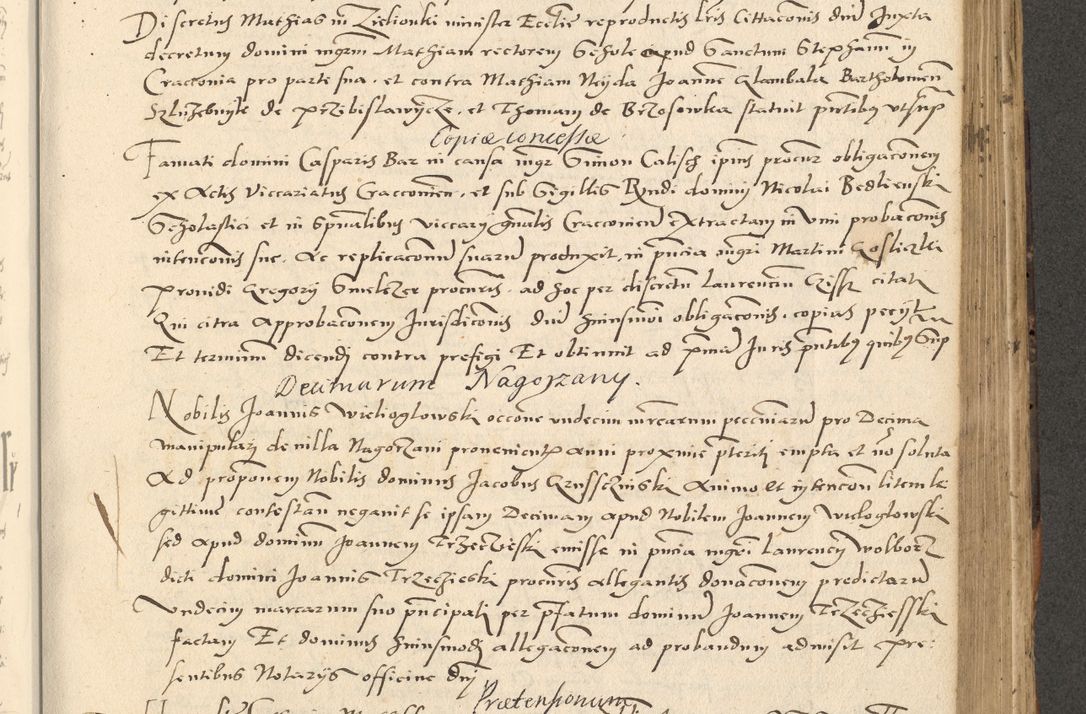 Discretus Mathias in Zielionki minister Ecclie reproductis lris Cittaconis dni Juxta
decretum domini mgrm Mathiam rectorem Schole apud Sanctum Stephanu in
Cracconia pro parte sua . et contra Mathiam Neyda Joanne Glambala Bartholomeu
Szluzebnyk de Przibislawycze . et Thomam de Brzosowka statuit pntibq vtsup
Copiæ concessæ
Famati domini Casparis Bar in causa mgr Simon Calisch ipius procur obligaconem
ex Actis Viccariatus Cracconien . et sub Sigillis Rndi domini Nicolai Bedlienski
Scholastici et in Spualibus viccarij gnalis Cracconien extractam in vim probaconis
intenconis sue . Ac replicaconu suaru produxit , in pncia mgri Martini Gosliczki
Prouidi Gregorij Smelczer procuris . ad hoc per discretu Laurenciu citat
Qui citra Approbaconem Jurisdiconis dni huiusmoi obligaconis . copias peciit
Et terminum dicendj contra prefigi Et obtinuit ad pma Juris pntibq quibq Sup
Decimarum Nagorzany .
Nobilis Joannis Wielioglowski occone vndecim mrcarum peccuniaru pro Decima
manipulari de villa Nagorzani prouenient anni proxime pteriti empta et no soluta
Ad proponem Nobilis dominus Jacobus Animo et intencon litem le
gittime contestan negauit se ipsam Decimam apud Nobilem Joannem Wieloglowski
sed apud dominu Joannem Trzeczieski emisse in pncia mgri Laurencij Wolborz
dicti domini Joannis Trzeczieski procuris allegantis donaconem predictaru
vndecim marcarum suo pncipali per pfatum dominu Joannem Trzecziesski
factam Et dominus huiusmodj allegaconem ad probandum admisit pre:
sentibus Notarijs officine dnj
Prætensionum